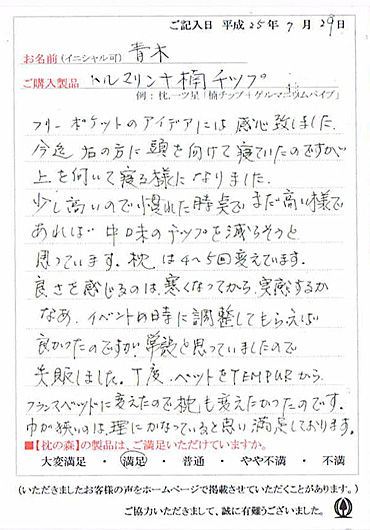 ご記入日 平成25年7月29日
お名前(イニシャル可) 青木
ご購入製品 トルマリン+楠チップ
例:枕.一ツ星「楠チップ+ゲルマニウムパイプ」
フリーポケットのアイデアには感心致しました.
今迄右の方に頭を向けて寝ていたのですが
上を向いて寝る様になりました.
少し高いので慣れた時点でまだ高い様で
あれば中味のチップを減らそうと
思っています.枕は4〜5回変えています.
良さを感じるのは寒くなってから実感するか
なあ.イベントの時に調整してもらえば
良かったのですが と思っていましたので
失敗しました.丁度.ベットをTEMPURから
フランスベッドに変えたので枕も変えたかったのです.
巾が狭いのは理にかなっていると思い満足しております.
■【枕の森】の製品は、ご満足いただけていますか。
大変満足 ・ 満足 ・ 普通 ・ やや不満 ・ 不満
(いただきましたお客様の声をホームページで掲載させていただくことがあります。)
ご協力いただきまして、誠に有難うございます。